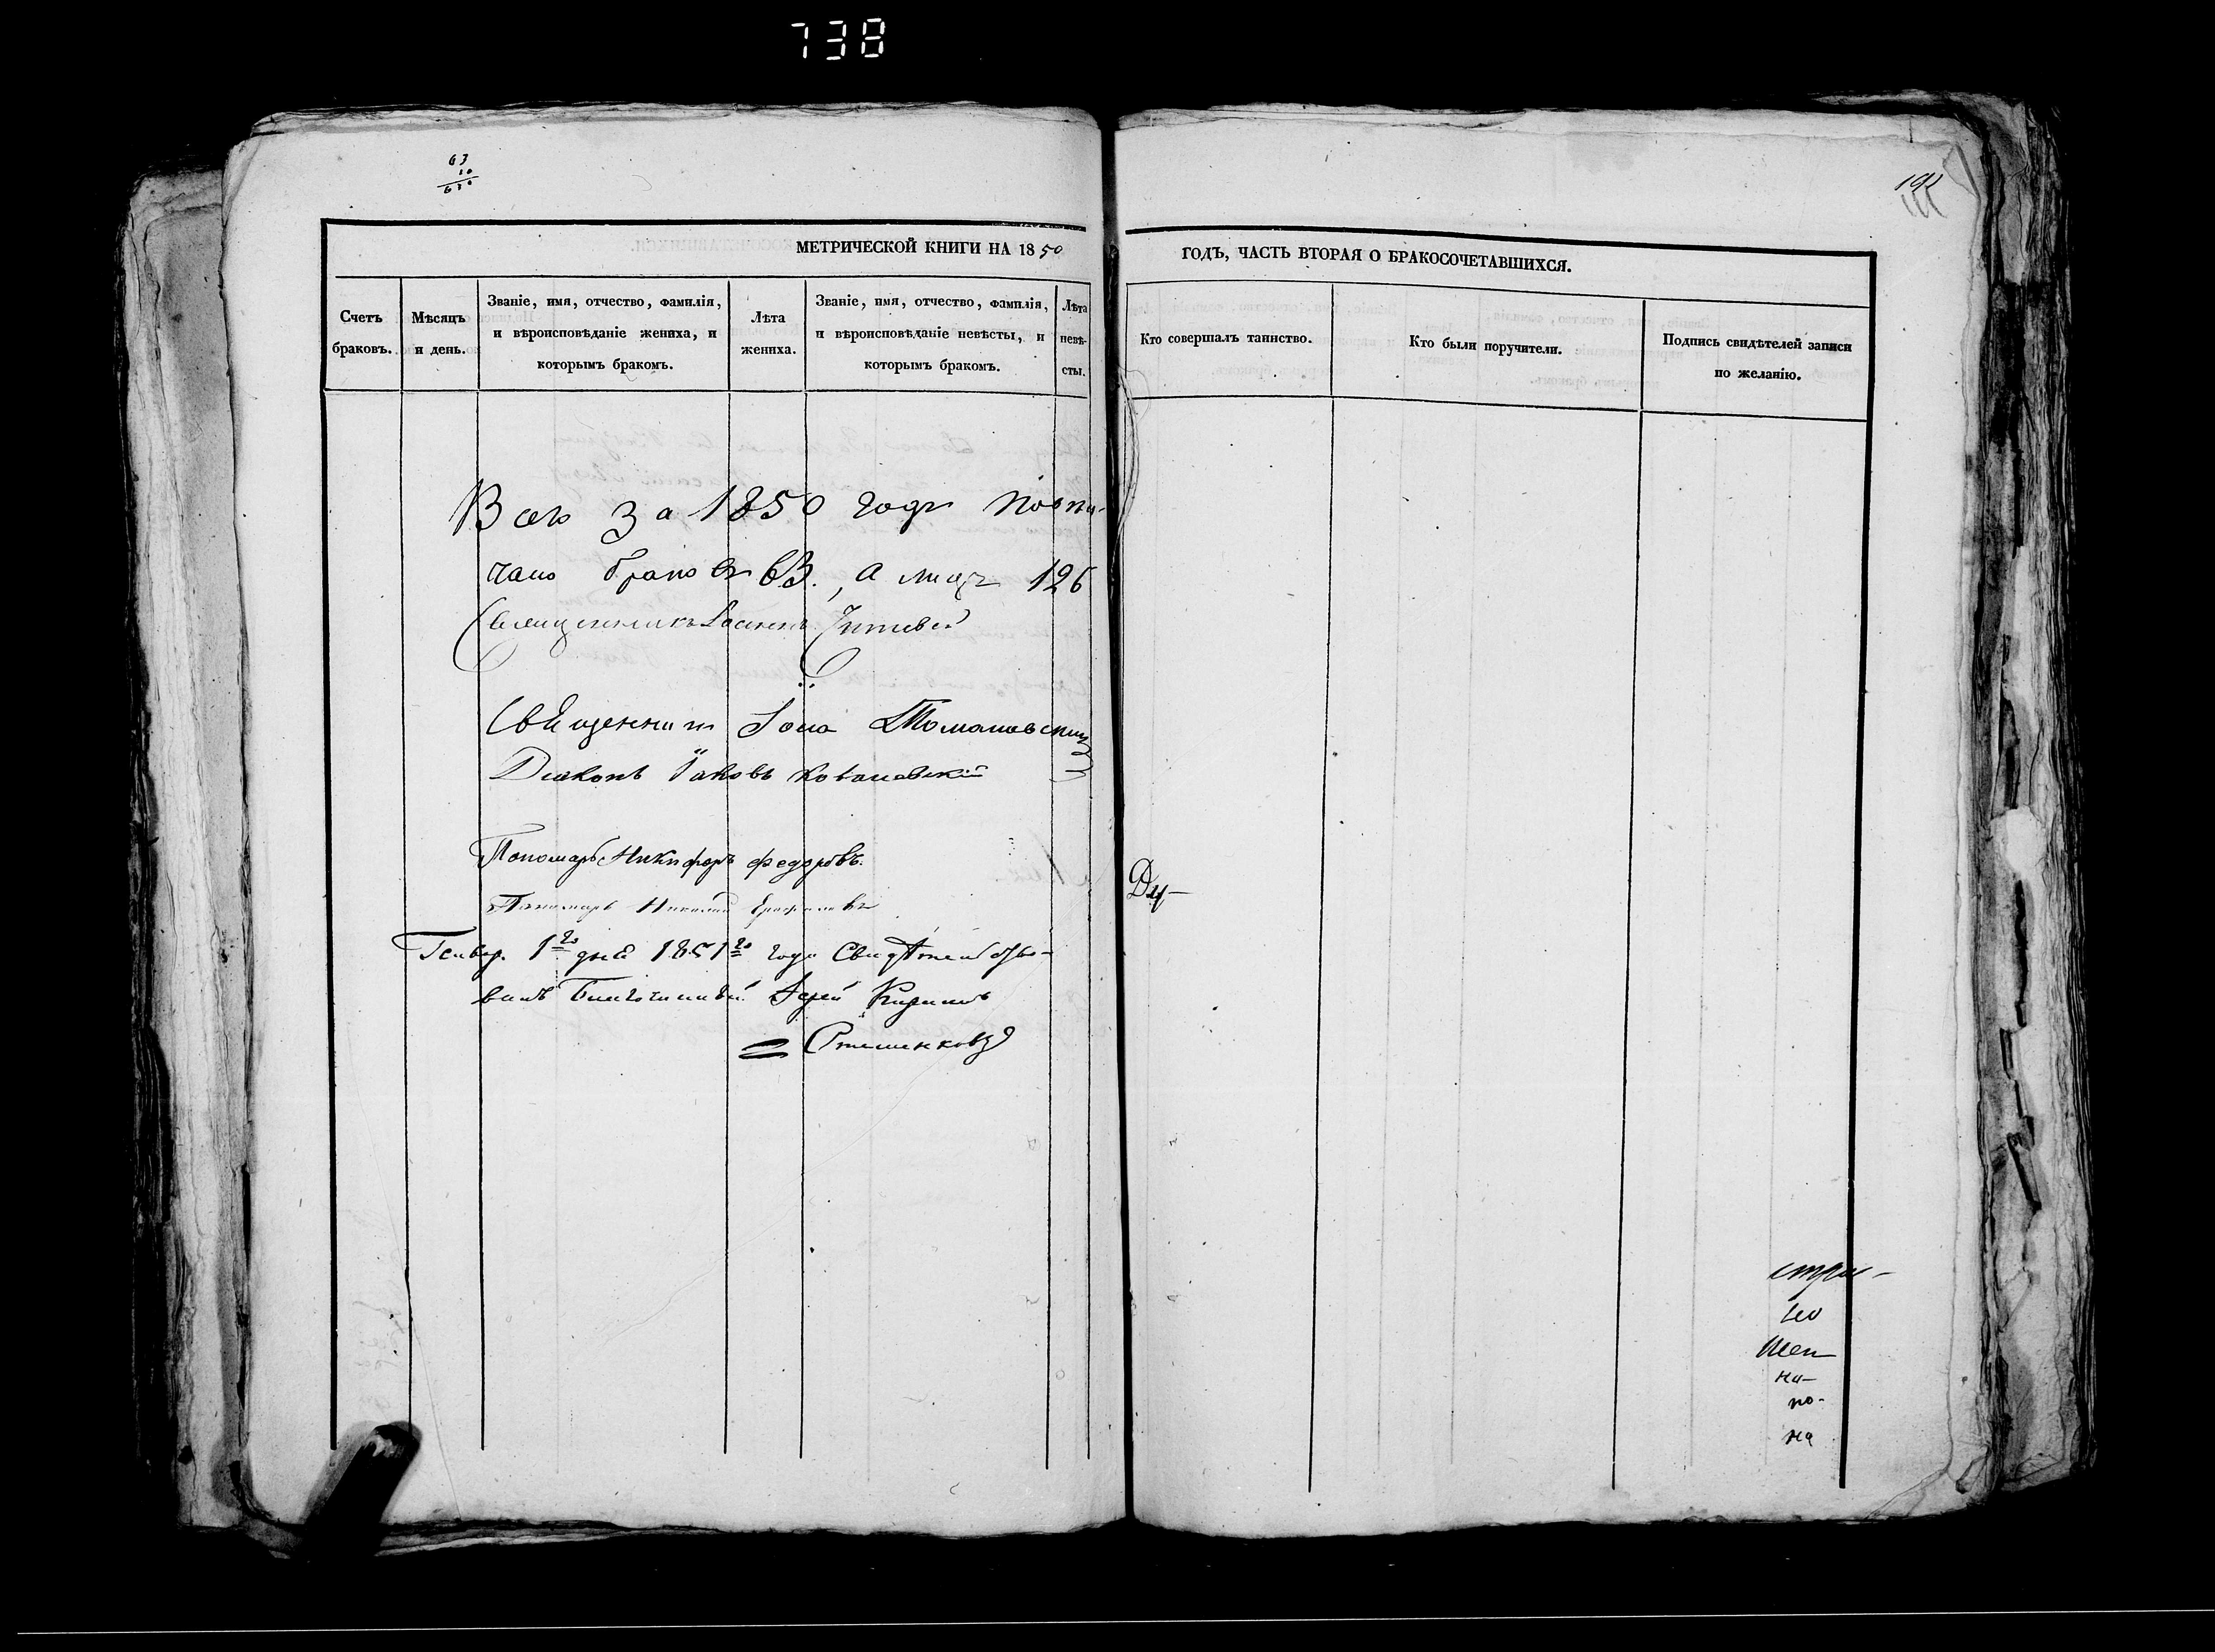 738
63
10
630
МЕТРИЧЕСКОЙ КНИГИ НА 1850
ГОДЪ, ЧАСТЬ ВТОРАЯ О БРАКОСОЧЕТАВШИХСЯ.
Счетъ браковъ.
Мѣсяцъ и день.
Званіе, имя, отчество, фамилія,
и вѣроисповѣданіе жениха, и
которымъ бракомъ.
Лѣта жениха.
Званіе, имя, отчество, фамилія,
и вѣроисповѣданіе невѣсты, и
которымъ бракомъ.
Лѣта невѣ-сты.
Кто совершалъ таинство.
Кто были поручители.
Подпись свидѣтелей записи
по желанію.
Всѣхъ за 1850 годъ повѣн-
чано браковъ 63., а лицъ 126
Священникъ Іоаннъ
Священникъ Іона Томашевскій
Діаконъ Іаковъ Ковалевскій
Пономарь Никифоръ Федоровъ.
Пономарь Николай
Генвар. 1го дня 1851го года Свидѣтельство-
валъ Благочинный Іерей Кирилъ
Стешенковъ
Ду-
стри-
шен
на-
по-
на